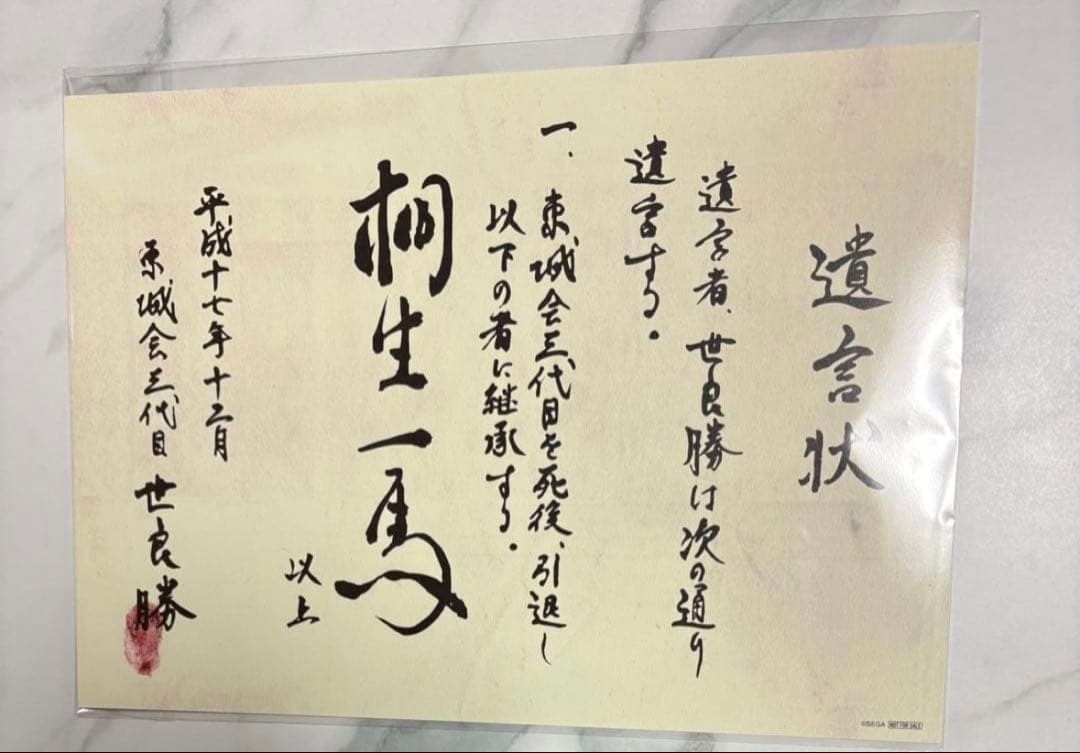 遺言状
遺言者、世良勝は次の通り
遺言する。
一、東城会三代目を死後、引退し
以下の者に継承する。
桐生一馬
以上
平成十七年十二月
東城会三代目 世良勝
©SEGA NOT FOR SALE